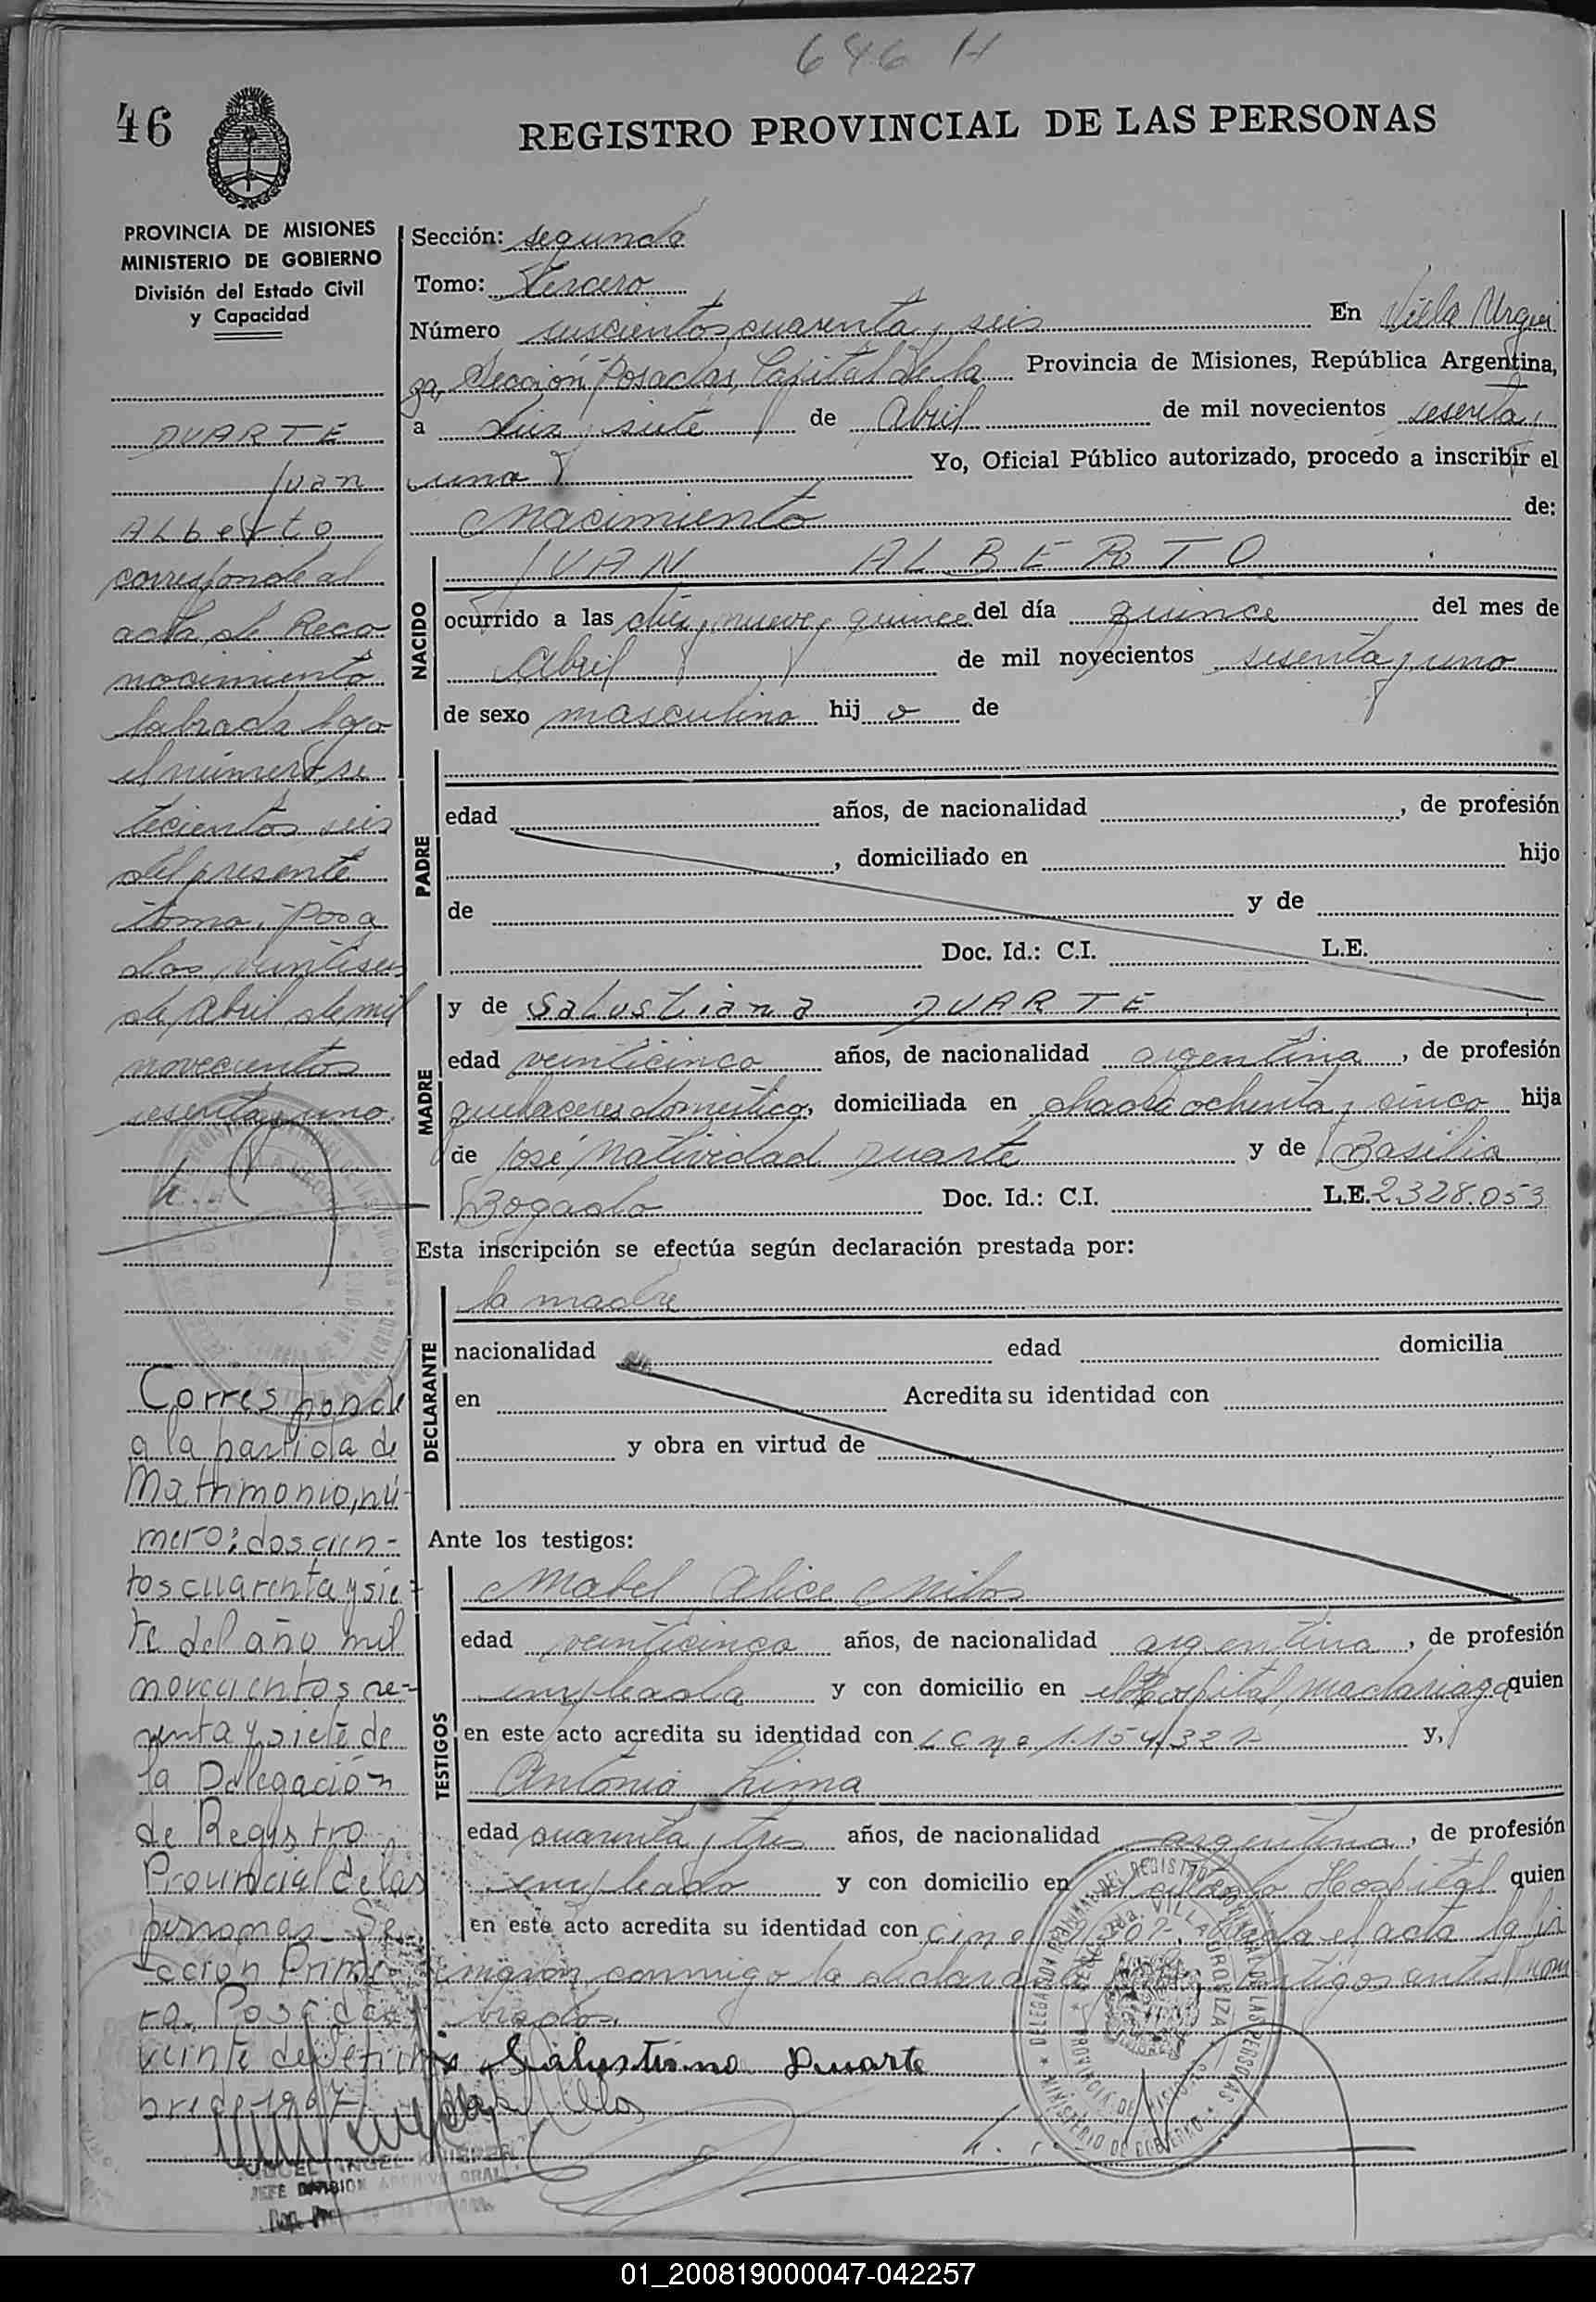 646 H
46
REGISTRO PROVINCIAL DE LAS PERSONAS
PROVINCIA DE MISIONES
MINISTERIO DE GOBIERNO
División del Estado Civil
y Capacidad
DUARTE
Juan
ALberto
corresponde al
acta de Reco
nocimiento
labrada bajo
el número se
tecientos seis
del presente
tomo. Posa
das, veintiseis
de Abril de mil
novecientos
sesenta y uno.
Corresponde
a la partida de
Matrimonio, nú-
mero: doscien-
tos cuarenta y sie-
te del año mil
novecientos 
 y siete de
la Delegación
de Registro
Provincial de las
personas Se
cción Prime
ra. Posadas
veinte de
bre de
JEFE DIVISION ARCHIVO GRAL
Sección: segunda
Tomo: Tercero
Número seiscientos cuarenta y seis En Villa Urqui
za, Sección Posadas, Capital de la Provincia de Misiones, República Argentina,
a diez y siete de Abril de mil novecientos sesenta y
uno Yo, Oficial Público autorizado, procedo a inscribir el
Nacimiento de:
NACIDO
JUAN ALBERTO
ocurrido a las diez y nueve y quince del día quince del mes de
Abril de mil novecientos sesenta y uno
de sexo masculino hij o de
PADRE
edad años, de nacionalidad , de profesión
, domiciliado en hijo
de y de
Doc. Id.: C.I. L.E.
MADRE
y de Salustiana DUARTE
edad veinticinco años, de nacionalidad argentina, de profesión
quehaceres domestico, domiciliada en chacra ochenta y cinco hija
de José Natividad Duarte y de Basilia
Bogado Doc. Id.: C.I. L.E. 2.328.053
Esta inscripción se efectúa según declaración prestada por:
DECLARANTE
la madre
nacionalidad edad domicilia
en Acredita su identidad con
y obra en virtud de
Ante los testigos:
TESTIGOS
Mabel Alice Milos
edad veinticinco años, de nacionalidad argentina, de profesión
empleada y con domicilio en el Hospital Madariaga quien
en este acto acredita su identidad con LC nº 1.154.321 y,
Antonio Lima
edad cuarenta y tres años, de nacionalidad argentina, de profesión
empleado y con domicilio en el citado Hospital quien
en este acto acredita su identidad con el acta la fir
man conmigo la testigos antes nom
brados.
Salustiana Duarte
01_200819000047-042257